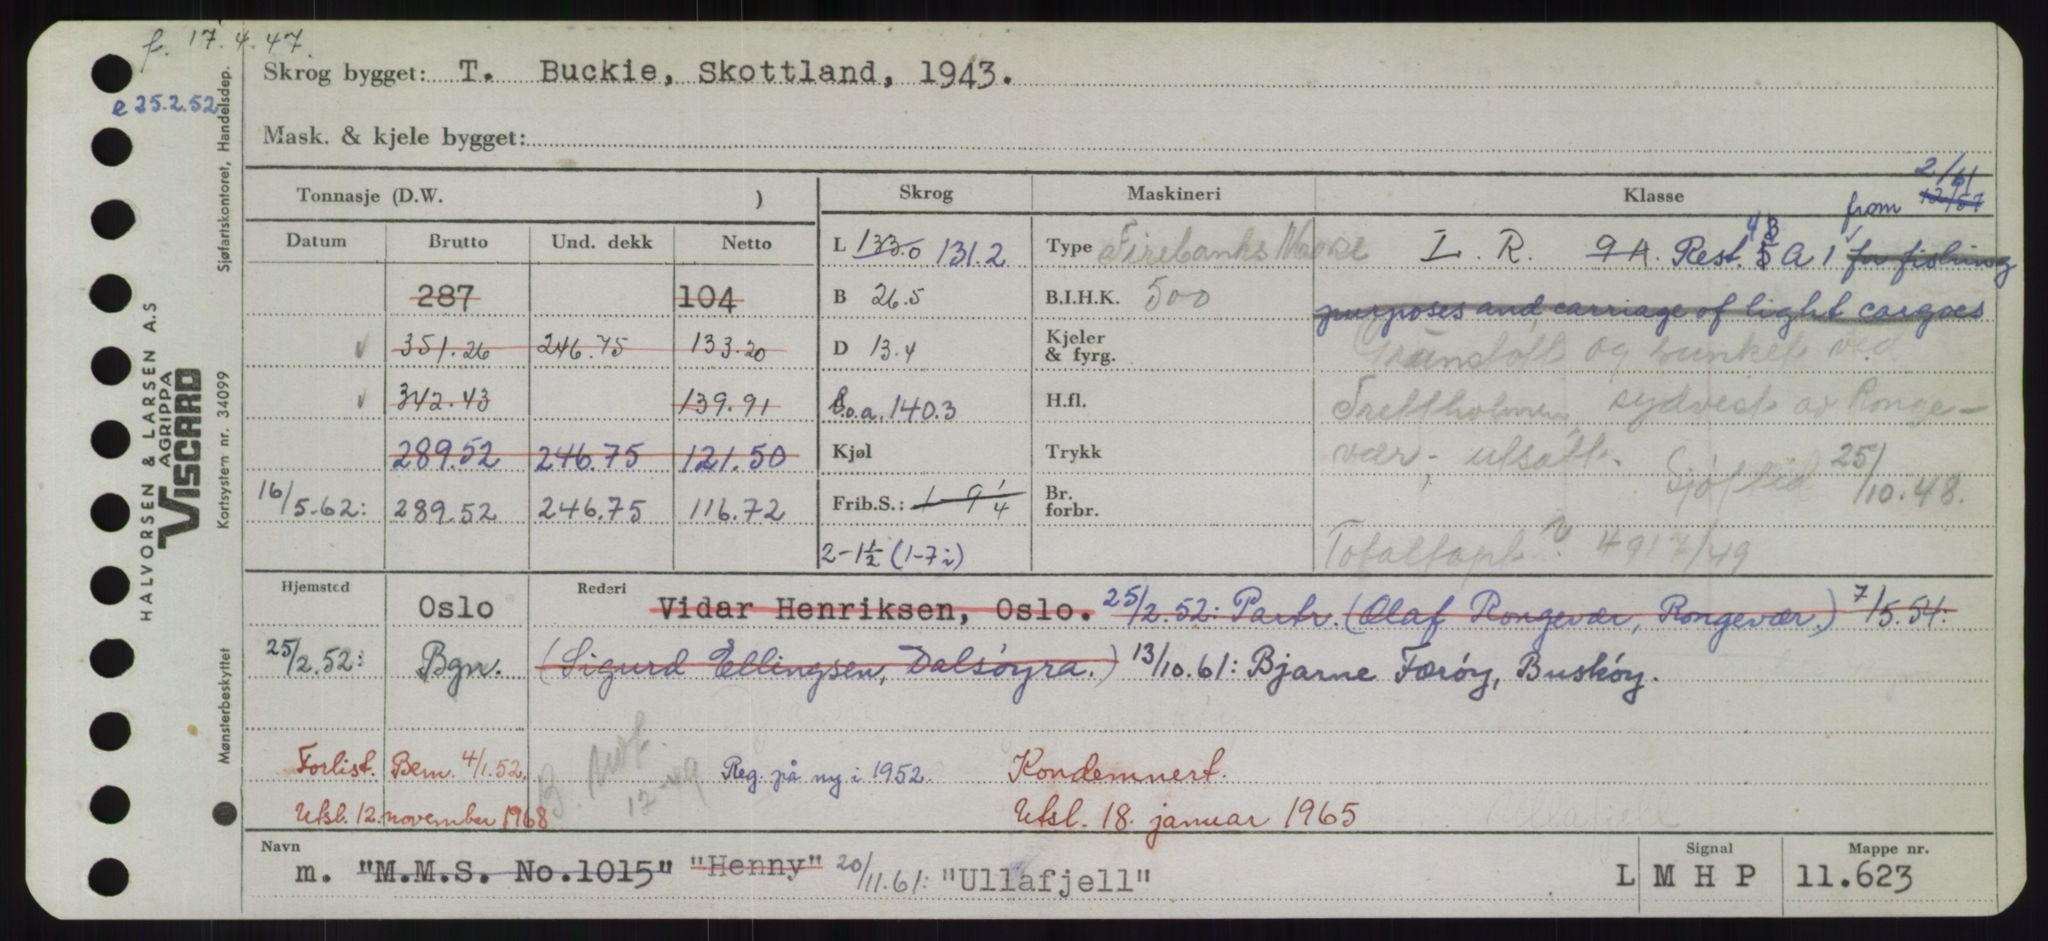 f. 17.4.47.
e 25.2.52
Skrog bygget: T. Buckie, Skottland, 1943.
Mask. & kjele bygget:
Sjøfartskontoret, Handelsdep.
Kortsystem nr. 34099
Mønsterbeskyttet
HALVORSEN & LARSEN A.S
AGRIPPA
VISCARD
Tonnasje (D.W. )
Datum Brutto Und. dekk Netto
287 104
351.26 246.75 133.20
342.43 139.91
289.52 246.75 121.50
16/5-62: 289.52 246.75 116.72
Skrog
L 133.0 131.2
B 26.5
D 13.4
L.o.a. 140.3
Kjøl
Frib.S.: 1-9 1/4
2-1 1/2 (1-7 i)
Maskineri
Type
B.I.H.K. 500
Kjeler & fyrg.
H.fl.
Trykk
Br. forbr.
Klasse
2/61
from 12/57
L. R. 9A. Rest. 5 A 1 for fishing
purposes and carriage of light cargoes
Grunstøtt og sunket ved
sydvest av Ronge-
vær, utsatt.
25/10.48.
Totaltapt 4917/49
Hjemsted Oslo
Rederi Vidar Henriksen, Oslo. 25/2.52: Partr. (Olaf Rongevær, Rongevær.) 7/5.54:
25/2.52: Bgn. (Sigurd Ellingsen, Dalsöyra.) 13/10.61: Bjarne Færöy, Busköy.
Forlist. Bem. 4/1.52. Reg. på ny i 1952. Kondemnert.
12-49
Utsl. 12. november 1968 Utsl. 18. januar 1965
Ullafjell
Navn Signal Mappe nr.
m. "M.M.S. No.1015" "Henny" 20/11.61: "Ullafjell" L M H P 11.623